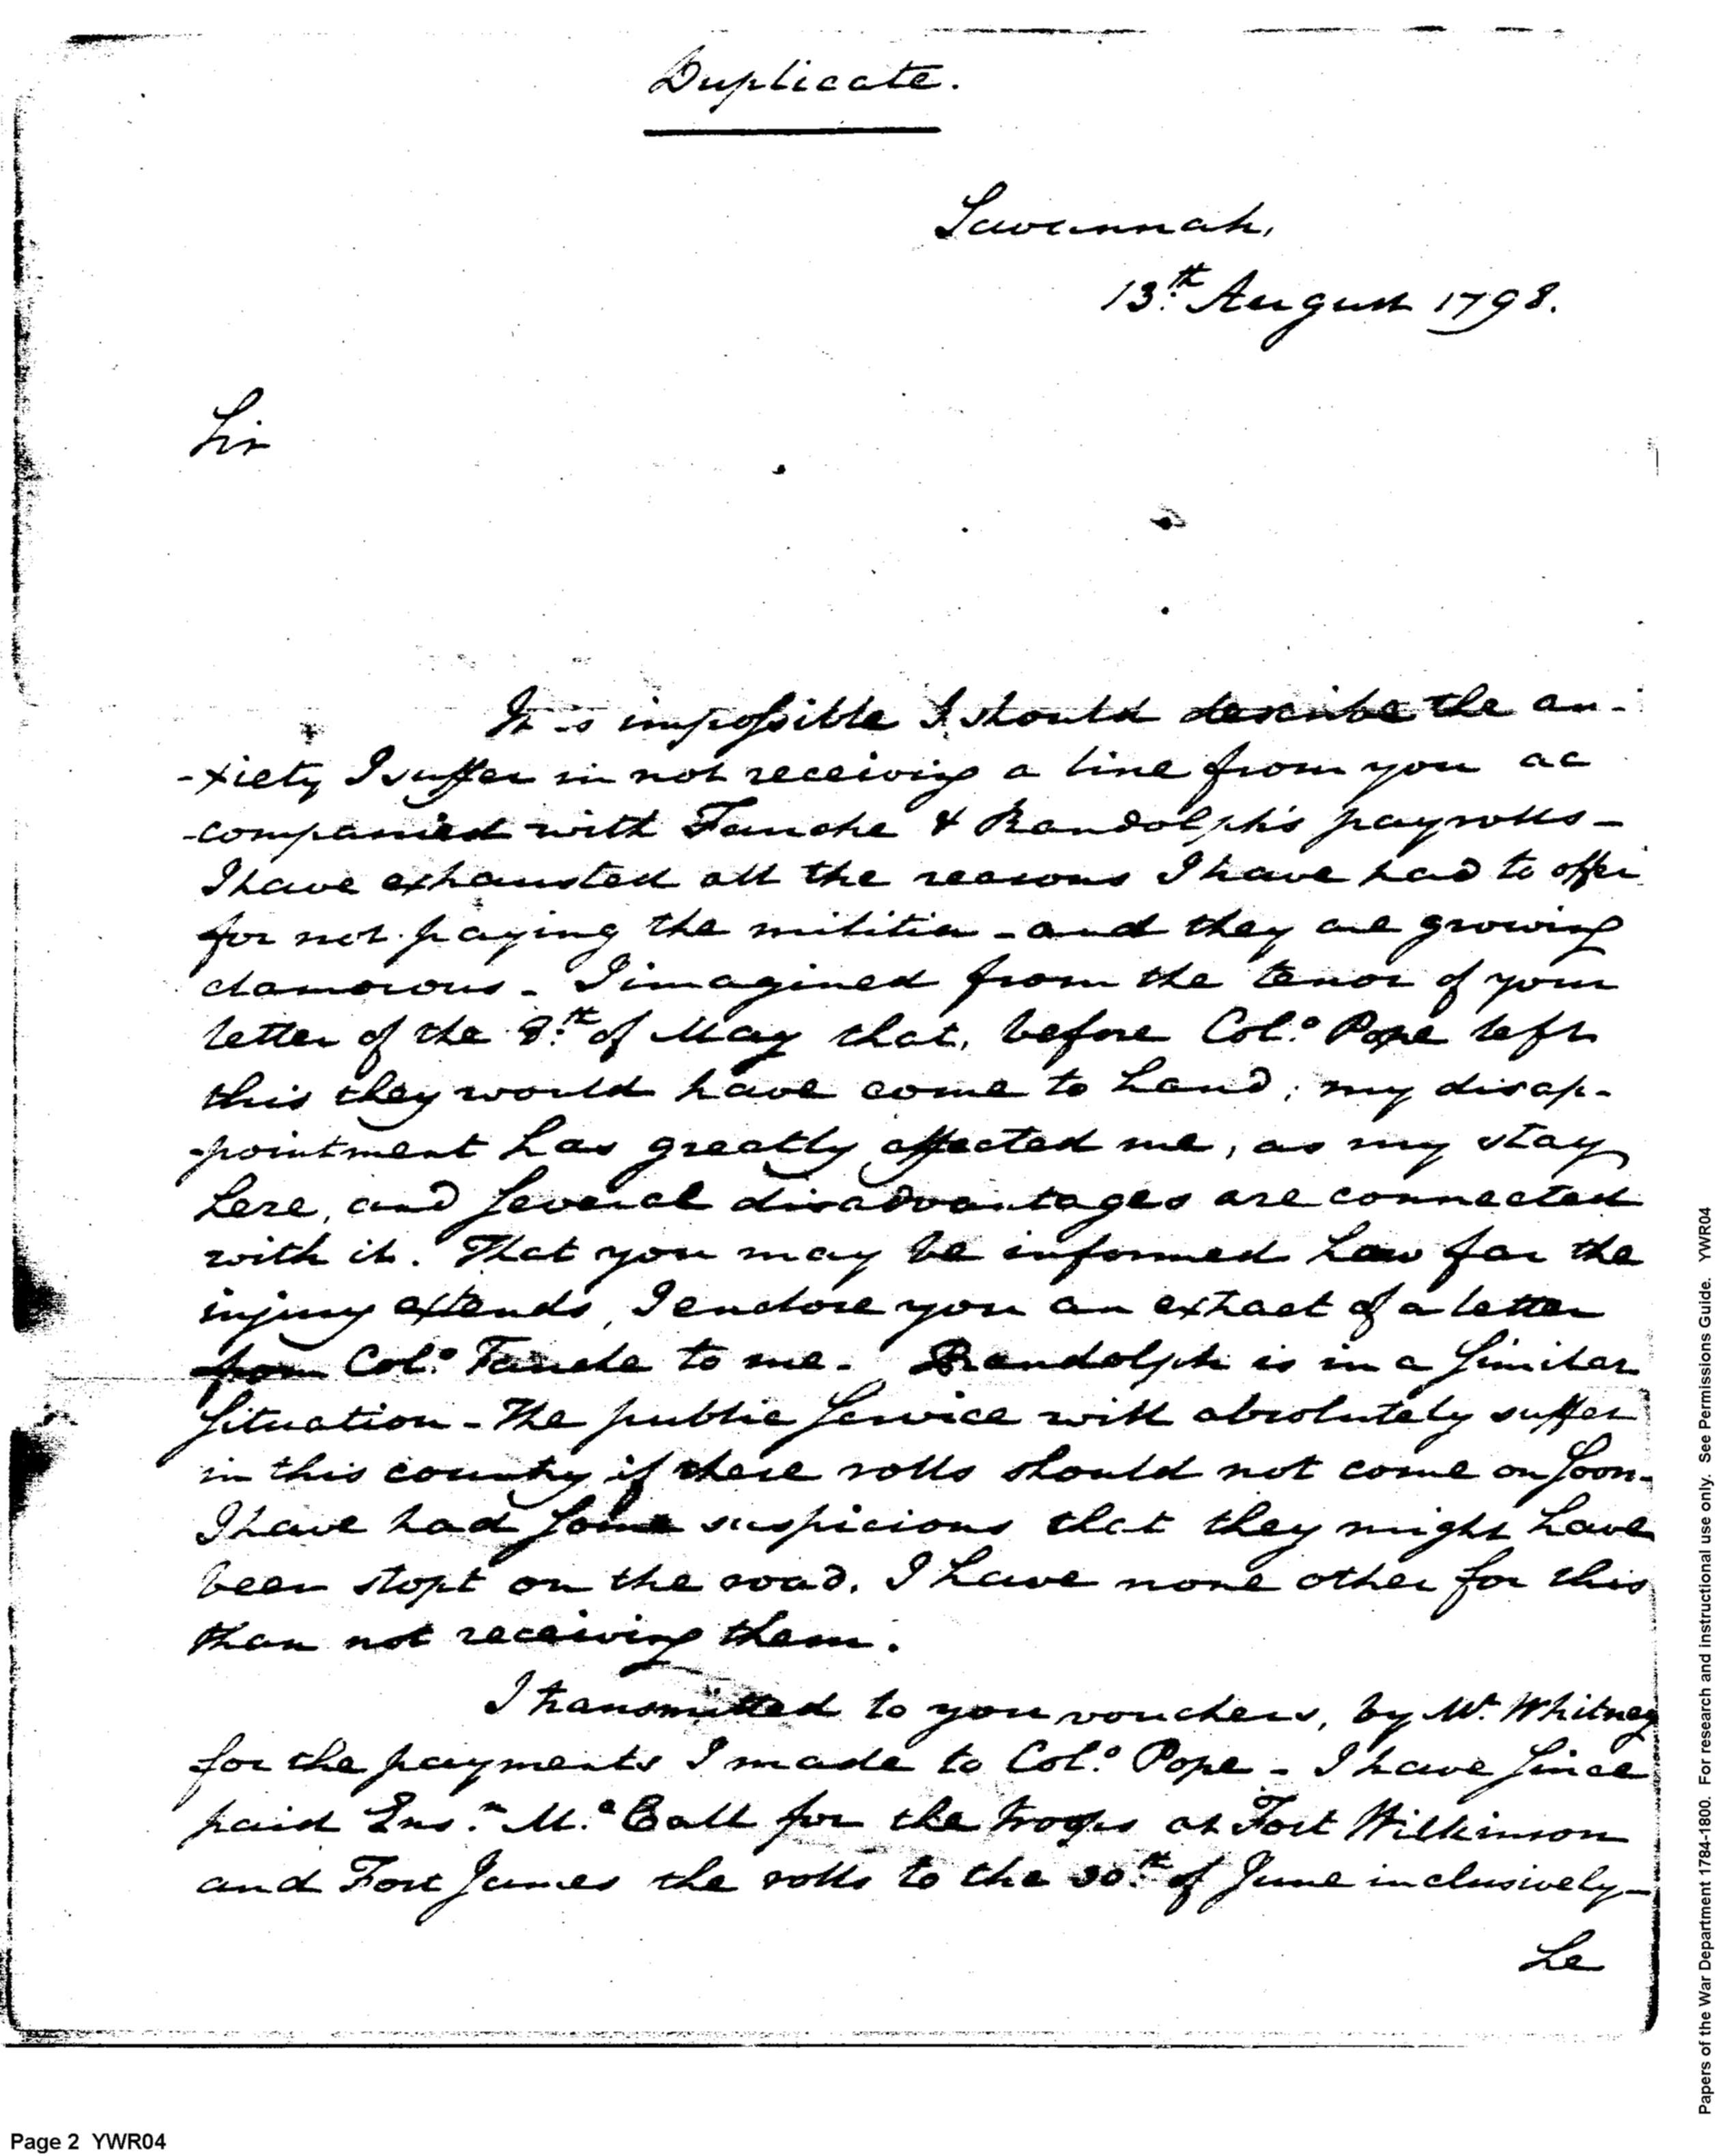 Duplicate.
Savannah,
13.th August 1798.
Sir
It is impossible I should describe the an-
-xiety I suffer in not receiving a line from you ac
-companied with Fauche & Randolph's payrolls -
I have exhausted all the reasons I have had to offer
for not paying the militia - and they are growing
clamorous - I imagined from the tenor of your
letter of the 8.th of May that, before Col.o Pope left
this they would have come to hand; my disap-
-pointment has greatly affected me, as my stay
here, and several disadvantages are connected
with it. That you may be informed how far the
injury extends, I enclose you an extract of a letter
from Col.o Fauche to me - Randolph is in a similar
situation - The public service will absolutely suffer
in this country if these rolls should not come on soon -
I have had some suspicions that they might have
been stopt on the road. I have none other for this
than not receiving them.
I transmitted to you vouchers, by Mr. Whitney
for the payments I made to Col.o Pope - I have since
paid Ens.n M.c Call for the troops at Fort Wilkinson
and Fort James the rolls to the 30.th of June inclusively -
he
Page 2 YWR04
Papers of the War Department 1784-1800. For research and instructional use only. See Permissions Guide. YWR04